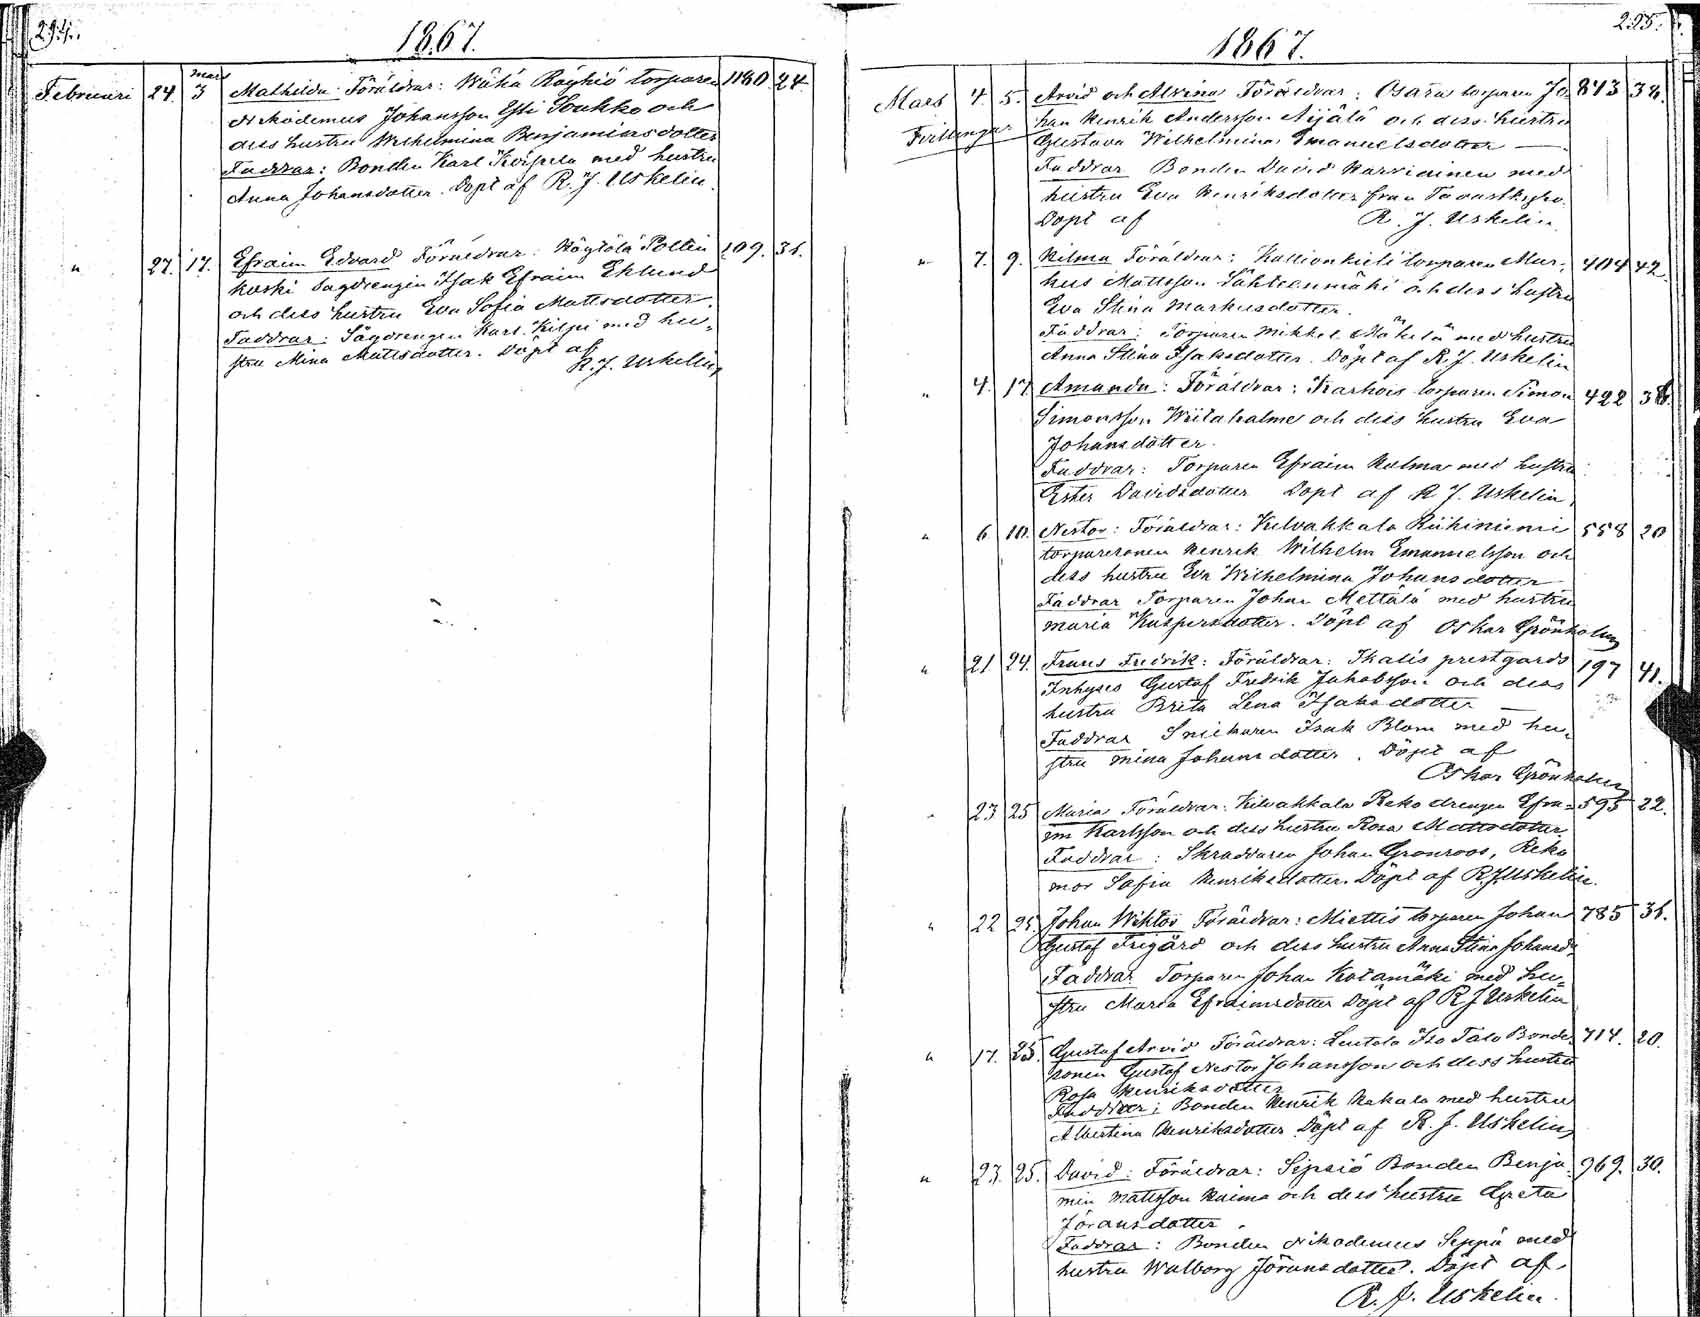 294.
1867.
Februari 24. mars 3 Mathilda: Föräldrar: Wähä Röyhiö torparen 1180. 24.
Nikodemus Johansson Esti Soukko och
dess hustru Wilhelmina Benjaminsdotter
Faddrar: Bonden Karl Korpela med hustru
Anna Johansdotter. Döpt af R. J. Uskelin.
" 27. 17. Efraim Edvard Föräldrar: Höytölä Poltin 109. 31.
koski sagdrengen Isak Efraim Eklund
och dess hustru Eva Sofia Mattsdotter.
Faddrar: Sågdrengen Karl Kilpi med hu-
stru Mina Mattsdotter. Döpt af
R. J. Uskelin,
295.
1867.
Mars 4. 5. Arvid och Alvina Föräldrar: Osara torparen Jo- 843 38.
Tvillingar han Henrik Andersson Äijälä och dess hustru
Gustava Wilhelmina Emanuelsdotter
Faddrar Bonden David Karviainen med
hustru Eva Henriksdotter från Tavastkyro.
Döpt af R. J. Uskelin.
" 7. 9. Hilma Föräldrar: Kallionkieli torparen Mar- 404 42.
kus Mattsson Lähteenmäki och dess hustru
Eva Stina Markusdotter.
Faddrar: Torparen Mikkel Mäkelä med hustru
Anna Stina Isaksdotter. Döpt af R. J. Uskelin
" 4. 17. Amanda: Föräldrar: Karhois torparen Simon 422 38.
Simonsson Wiitahalme och dess hustru Eva
Johansdotter.
Faddrar: Torparen Efraim Kulma med hustru
Ester Davidsdotter Döpt af R J. Uskelin,
" 6 10. Nestor: Föräldrar: Kilvakkala Riihiniemi 558 20
torparesonen Henrik Wilhelm Emanuelsson och
dess hustru Eva Wilhelmina Johansdotter
Faddrar Torparen Johan Mettälä med hustru
Maria Kaspersdotter. Döpt af Oskar Grönholm
" 21 24. Frans Fredrik: Föräldrar: Ikalis prestgårds 197 41.
Inhyses Gustaf Fredrik Jakobsson och dess
hustru Brita Lena Isaksdotter
Faddrar Snickaren Isak Blom med hu-
stru Mina Johansdotter. Döpt af
Oskar Grönholm
" 23 25 Maria Föräldrar: Kilvakkala Reko drengen Efra- 595 22.
im Karlsson och dess hustru Rosa Mattsdotter.
Faddrar: Skräddaren Johan Grönroos, Reko
mor Sofia Henriksdotter. Döpt af R. J. Uskelin.
" 22 25. Johan Wiktor Föräldrar: Miettis torparen Johan 785 31.
Gustaf Frigård och dess hustru Anna Stina Johansd.
Faddrar Torparen Johan Kotamäki med hu-
stru Maria Efraimsdotter Döpt af R J Uskelin
" 17. 25. Gustaf Arvid Föräldrar: Luotola Iso Talo Bonde- 714. 20.
sonen Gustaf Nestor Johansson och dess hustru
Rosa Henriksdotter
Faddrar: Bonden Henrik Hakala med hustru
Albertina Henriksdotter Döpt af R. J. Uskelin,
" 23. 25. David: Föräldrar: Sipsiö Bonden Benja- 969. 30.
min Mattsson Haima och dess hustru Greta
Jöransdotter.
Faddrar: Bonden Nikodemus Seppä med
hustru Walborg Jöransdotter. Döpt af
R. J. Uskelin.